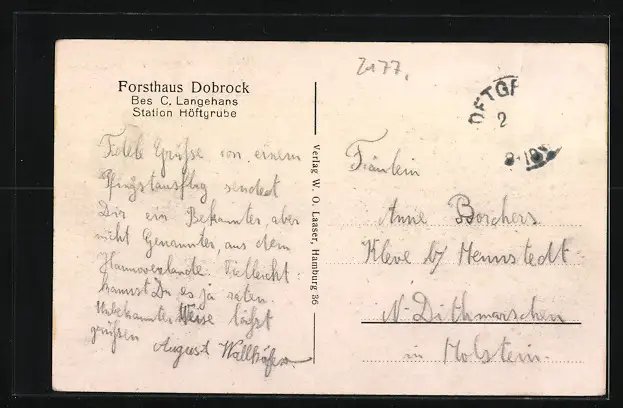 2177.
Forsthaus Dobrock
Bes C. Langehans
Station Höftgrube
Fidele Grüße von einem
Pfingstausflug sendet
Dir ein Bekannter, aber
nicht Genannter, aus dem
Hannoverlande. Vielleicht
kannst Du es ja raten.
Unbekannter Weise läßt
grüßen August
Verlag W. O. Laaser, Hamburg 36
Fräulein
Anne Borchers
Kleve b/ Hennstedt
N. Dithmarschen
in Holstein.
2